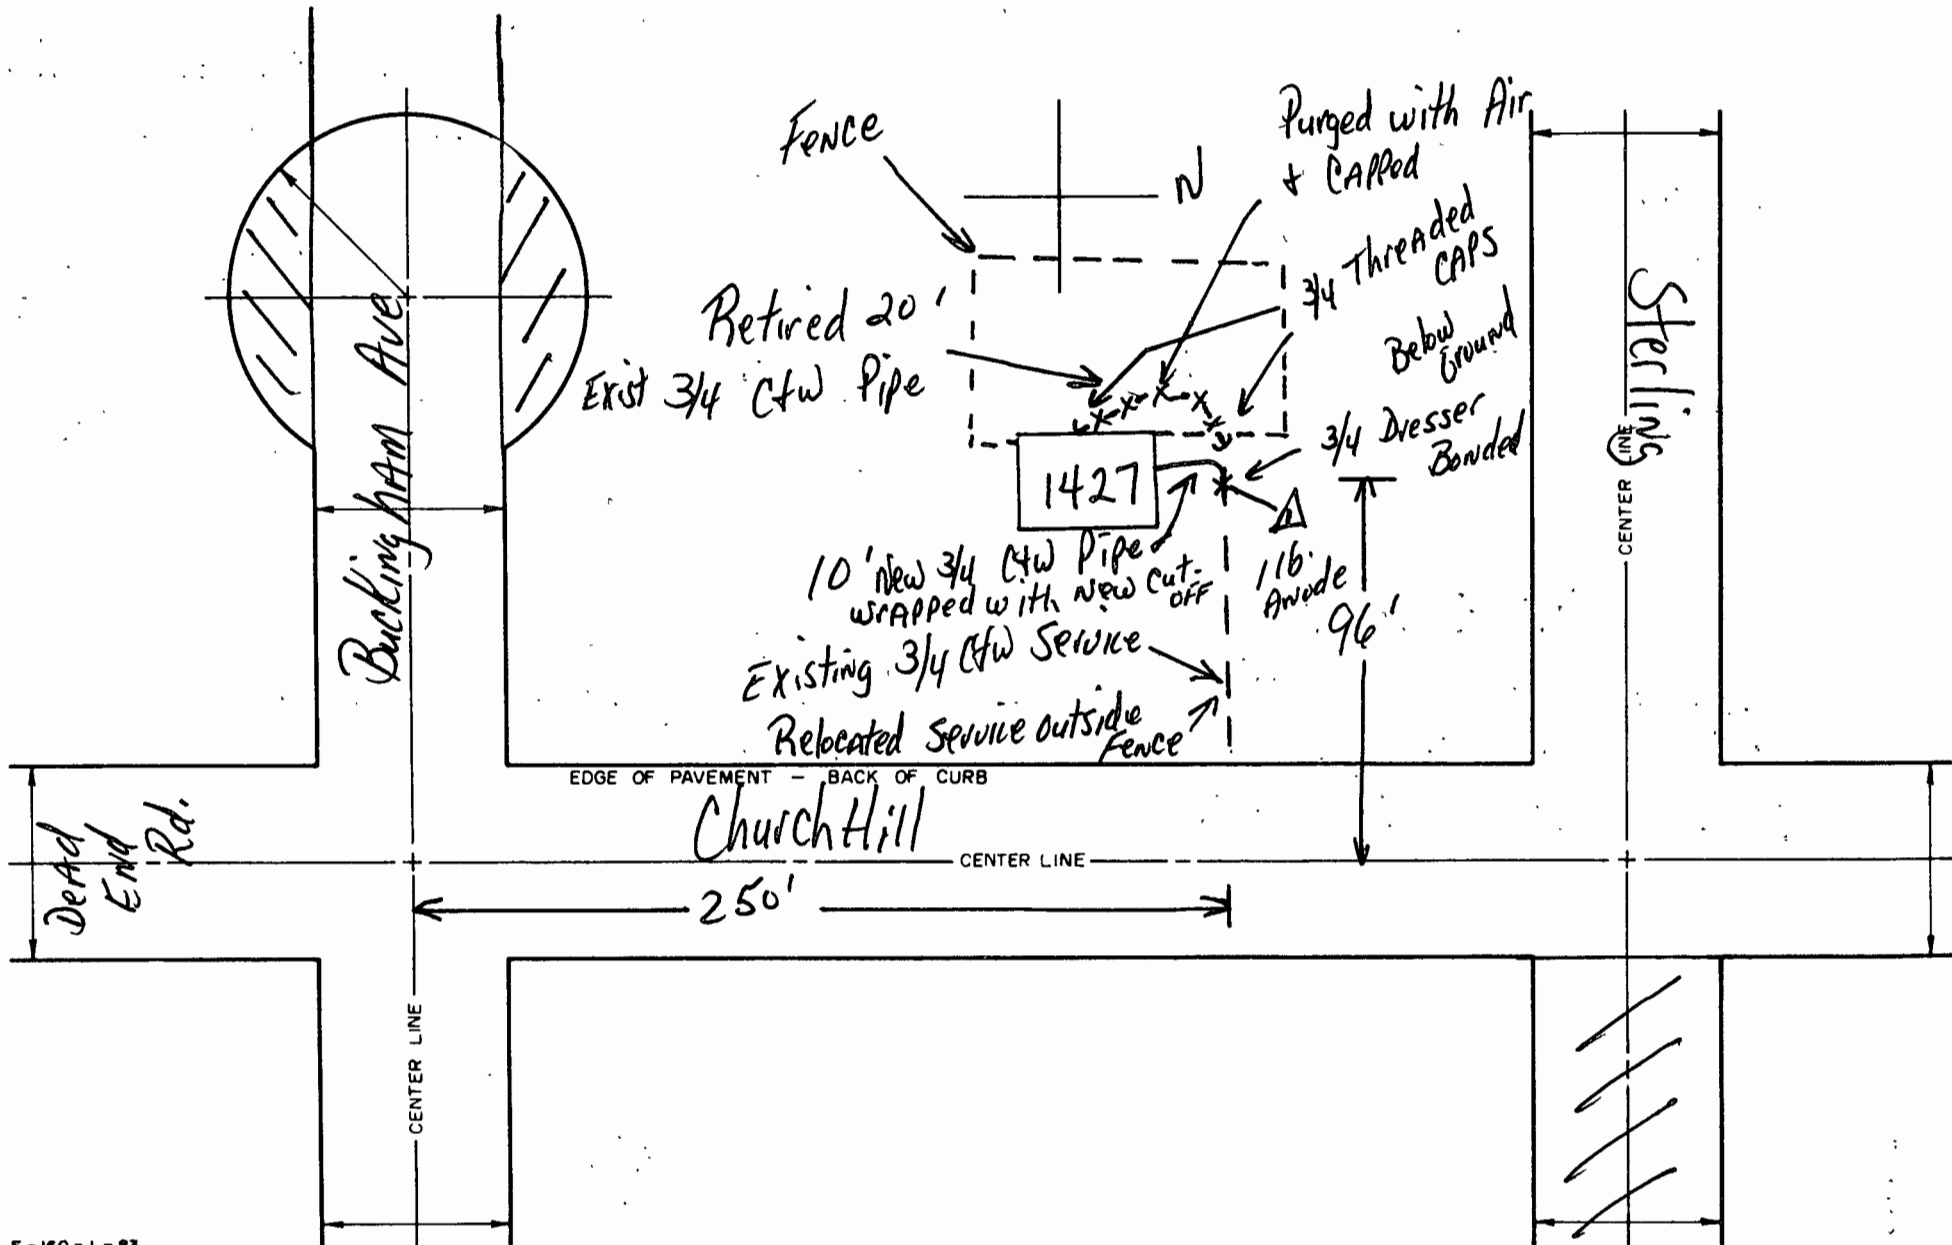 Fence
N
Purged with Air
+ CAPPed
3/4 Threaded
CAPS
Below
Ground
Retired 20'
Exist 3/4 C+W Pipe
3/4 Dresser
Bonded
1427
10' New 3/4 C+W Pipe
wrapped with New Cut-
OFF
1 lb.
Anode
96'
Existing 3/4 C+W Service
Relocated Service outside
Fence
Buckingham Ave
Sterling
CENTER LINE
EDGE OF PAVEMENT – BACK OF CURB
ChurchHill
CENTER LINE
Dead
End
Rd.
250'
CENTER LINE